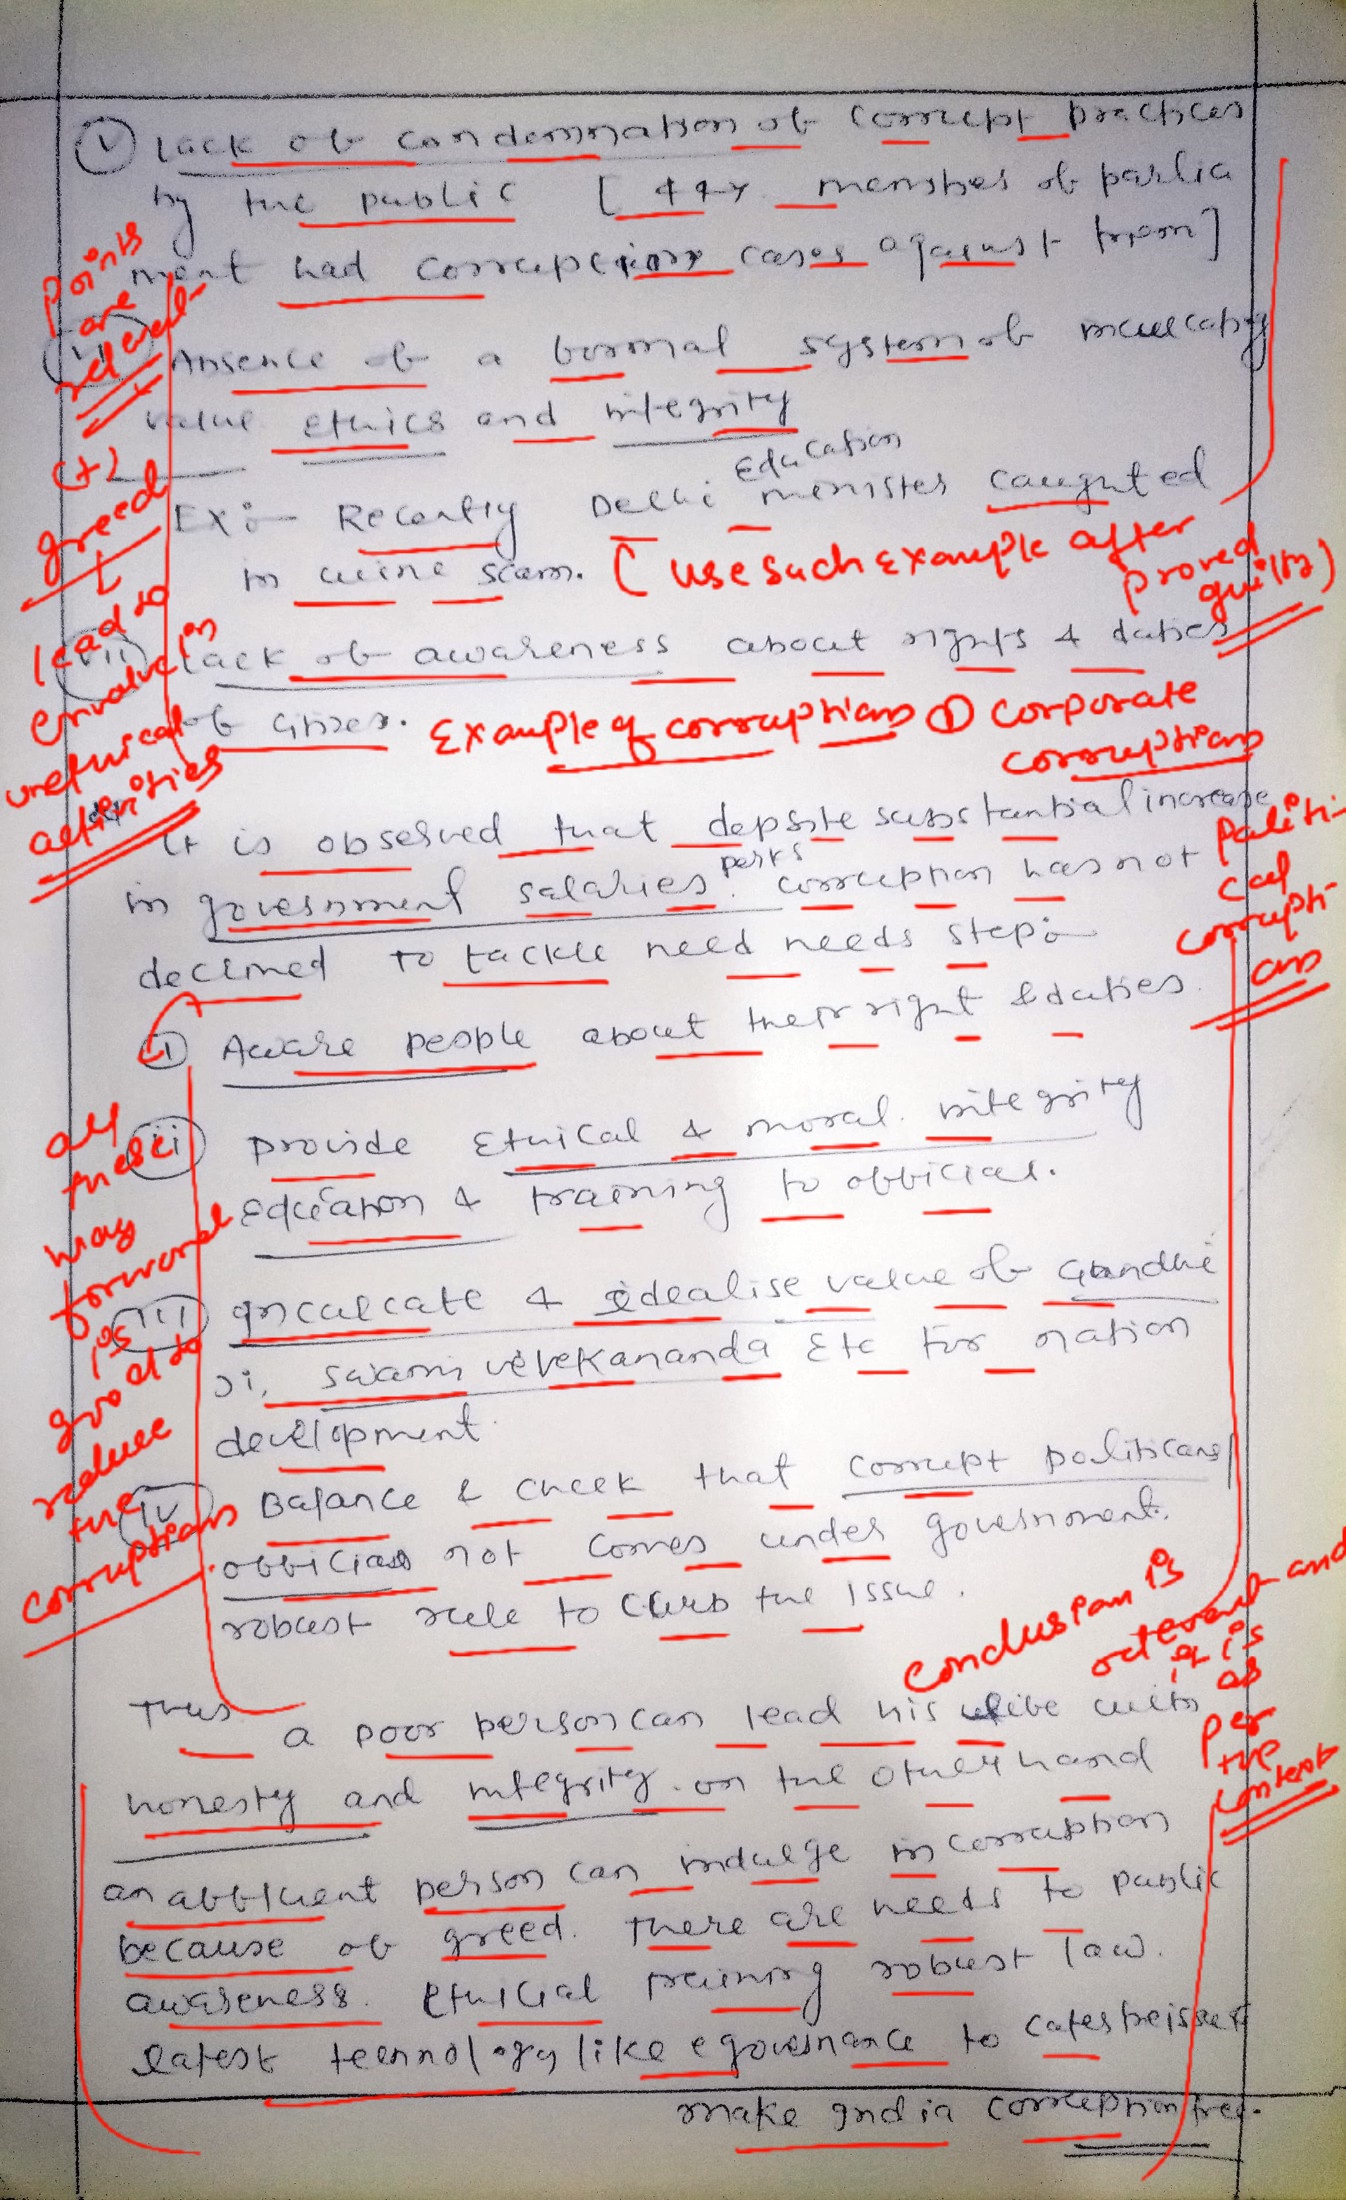 (V) Lack of condemnation of corrupt practices
by the public [44% members of parlia
ment had corruption cases against them]
Points
are
relevant
(vi) Absence of a formal system of inculcating
value ethics and integrity
(+)
greed
↓
lead to
envolve in
unethical
activities
Ex:- Recently Delhi Education menister caughted
in wine scam. (use such Example after
proved
guilty)
(vii) Lack of awareness about rights & duties
of citizen. Example of corruptions ① corporate
corruptions
Politi-
cal
corrupti-
ons
It is observed that depsite substantial increase
in government salaries perks corruption has not
declined to tackle need needs step:-
(i) Aware people about their right & duties.
(ii) provide Ethical & moral integrity
education & training to official.
all
these
way
forward
is
good to
reduce
the
corruptions
(iii) Inculcate & idealise value of Gandhi
ji, swami vivekananda Etc for nation
development.
(iv) Balance & check that corrupt politicans/
officials not comes under government.
robust rule to curb the issue.
conclusion is
relevant and
it is
as
per
the
context
Thus a poor person can lead his life with
honesty and integrity. on the other hand
an affluent person can indulge in corruption
because of greed. There are needs to public
awareness. Ethical training robust law.
latest technology like egovernance to
make India corruption free.